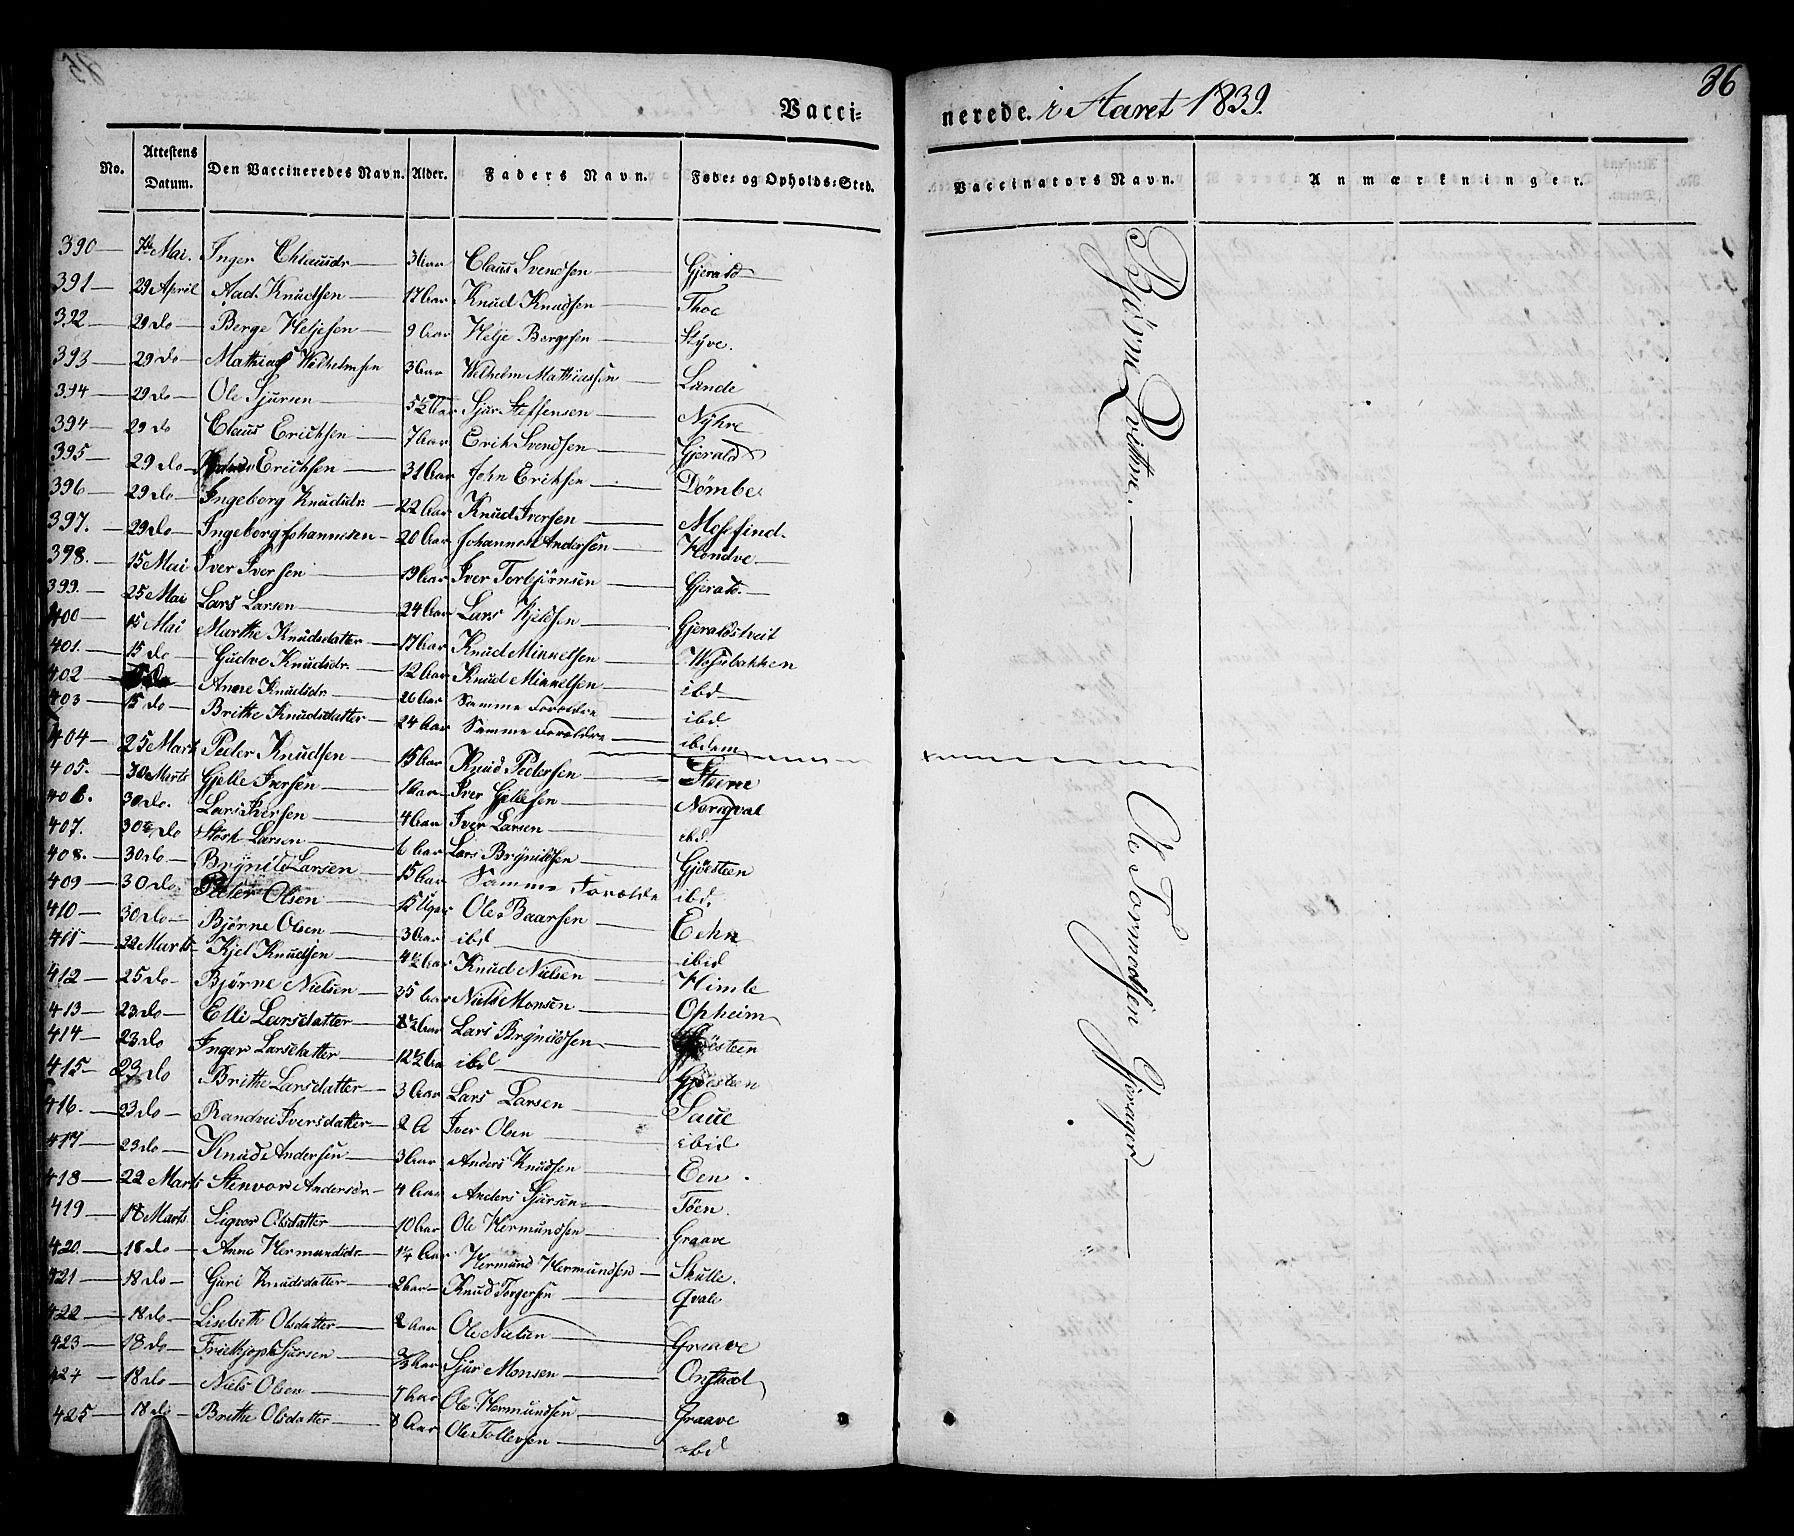 86
Vacci-
nerede. i Aaret 1839.
No. Attestens Datum. Den Vaccineredes Navn. Alder. Faders Navn. Føde- og Opholds-Sted. Vaccinators Navn. Anmærkninger.
390 7de Mai. Inger Chlausdr 3 Aar Claus Svendsen Gjerald
391 29 April Aad Knudsen 17 Aar Knud Knudsen Thoe
392 29 do Berge Heljesen 9 Aar Helje Bergesen Style.
393 29 do Mathias Wilhelmsen 3 Aar Wilhelm Mathiassen Lunde
394 29 do Ole Sjursen 5 1/2 Aar Sjur Steffensen Nyhre
394 29 do Claus Erichsen 7 Aar Erik Svendsen Gjerald
395 29 do Erichsen 31 Aar John Eriksen Dömbe
396 29 do Ingeborg Knudsdr. 22 Aar Knud Iversen Mossfind.
397. 29 do Ingeborg Johannesen 20 Aar Johannes Andersen Hondve
398. 15 Mai Iver Iversen 19 Aar Iver Torbjörnsen Gjerald.
399. 25 Mai Lars Larsen 24 Aar Lars Kjeldsen Gjeraldstveit
400 15 Mai Marthe Knudsdatter 17 Aar Knud Mikkelsen
401. 15 do Gudve Knudsdr. 12 Aar Knud Mikkelsen ibd
402 Anne Knudsdr 26 Aar Samme Forældre ibd
403 15 do Brithe Knudsdatter 24 Aar Samme Forældre ibdem
404 25 Marts Peder Knudsen 15 Aar Knud Pedersen Steene
405. 30 Marts Gjelle Iversen 1 Aar Iver Gjellesen Norqval
406. 30 do. Lars Iversen 4 Aar Iver Larsen ibd.
407. 30 do Larsen 6 Aar Lars Brynildsen Gjösteen
408. 30 do Brynild Larsen 15 Aar Samme Forældre ibd.
409 30 do Peder Olsen Ole Baarsen Eehn
410 30 do Bjørne Olsen 3 Aar ibd ibid
411 22 Marts Kjel Knudsen 4 1/2 Aar Knud Nielsen Himle
412 25 do Bjørne Nielsen 35 Aar Niels Monsen Opheim
413 23 do Elli Larsdatter Lars Brynildsen Gjösteen
414 23 do Inger Larsdatter 12 1/2 Aa ibd Gjösteen
415 23 do Brithe Larsdatter 3 Aar Lars Larsen Saue
416. 23 do Randvei Iversdatter 2 A Iver Olsen ibid
417 23 do Knud Andersen 3 Aar Anders Knudsen Een.
418 22 Marts Stenvor Andersdr 4 Aar Anders Sjursen Töen.
419 18 Marts Sigvor Olsdatter 10 Aar Ole Hermundsen Graave
420. 18 do Anne Hermundsdr 1 1/4 Aar Hermund Hermundsen Skulle.
421 18 do Guri Knudsdatter 2 Aar Knud Torgersen Qvale
422 18 do Lisebeth Olsdatter 2 Aar Ole Nielsen Graave
423 18 do Friethjoph Sjursen Sjur Monsen Onstad
424 18 do Niels Olsen 7 Aar Ole Hermundsen Graave
425 18 do Brithe Olsdatter 8 Aar Ole Tollevsen ibd
Björn Qvittne.
Ole Tormodsen Gjerager